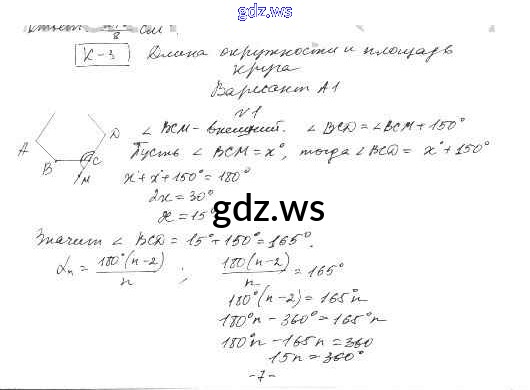 gdz.ws
Ответ: 8 см.
К-3 Длина окружности и площадь
круга
Вариант А1
№1
∠BCM - внешний. ∠BCD = ∠BCM + 150°
Пусть ∠BCM = x°, тогда ∠BCD = x° + 150°
x° + x° + 150° = 180°
2x = 30°
x = 15°
gdz.ws
A B C D M
Значит ∠BCD = 15° + 150° = 165°.
αn = 180°(n-2)/n ; 180°(n-2)/n = 165°
180°(n-2) = 165°n
180°n - 360° = 165°n
180°n - 165n = 360
15n = 360°
-7-